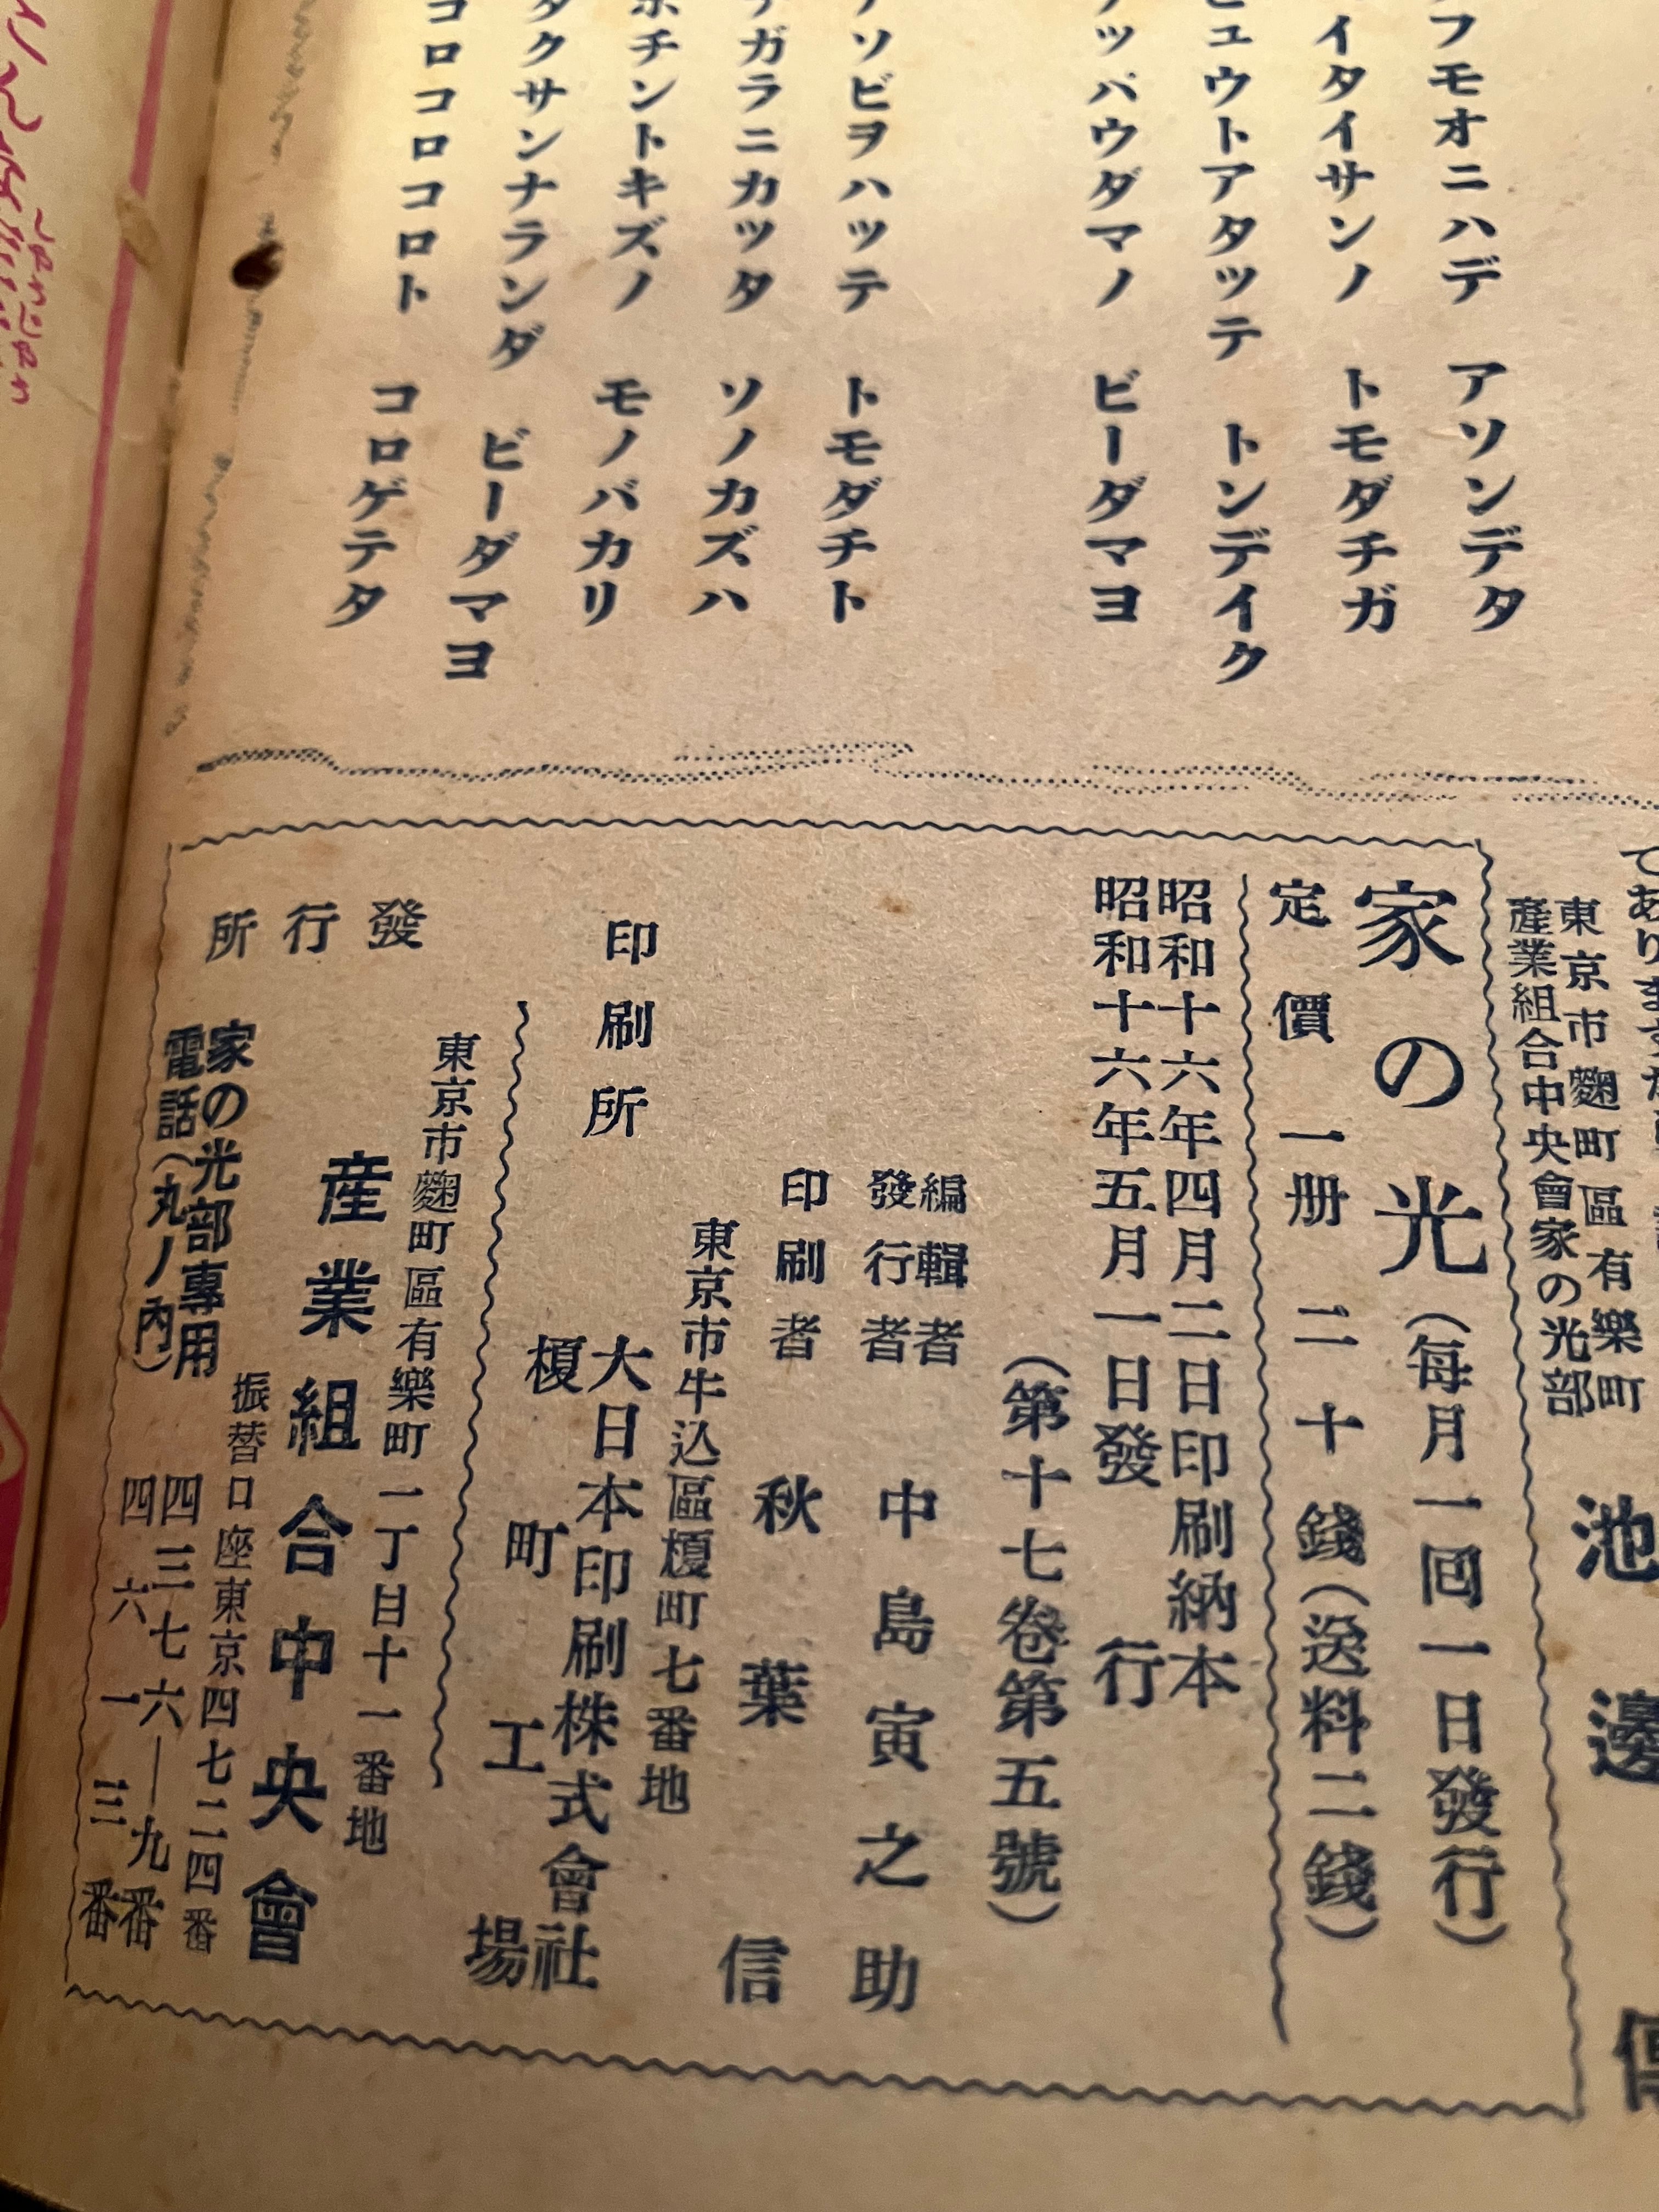 フモオニハデ　アソンデタ
イタイサンノ　トモダチガ
ュウトアタッテ　トンデイク
ッパウダマノ　ビーダマヨ
ソビヲハッテ　トモダチト
ガラニカッタ　ソノカズハ
チントキズノ　モノバカリ
タクサンナランダ　ビーダマヨ
コロコロコロト　コロゲテタ
東京市麴町區有樂町
産業組合中央會家の光部
池邊
家の光(每月一回一日發行)
定價一册二十錢(送料二錢)
昭和十六年四月二日印刷納本
昭和十六年五月一日發行
(第十七卷第五號)
編輯者
發行者
中島寅之助
印刷者　秋葉信
東京市牛込區榎町七番地
印刷所
大日本印刷株式會社
榎町工場
東京市麴町區有樂町一丁目十一番地
發行所　産業組合中央會
振替口座東京四七二四番
家の光部專用
電話(丸ノ内)
四三七六―九番
四六一三番